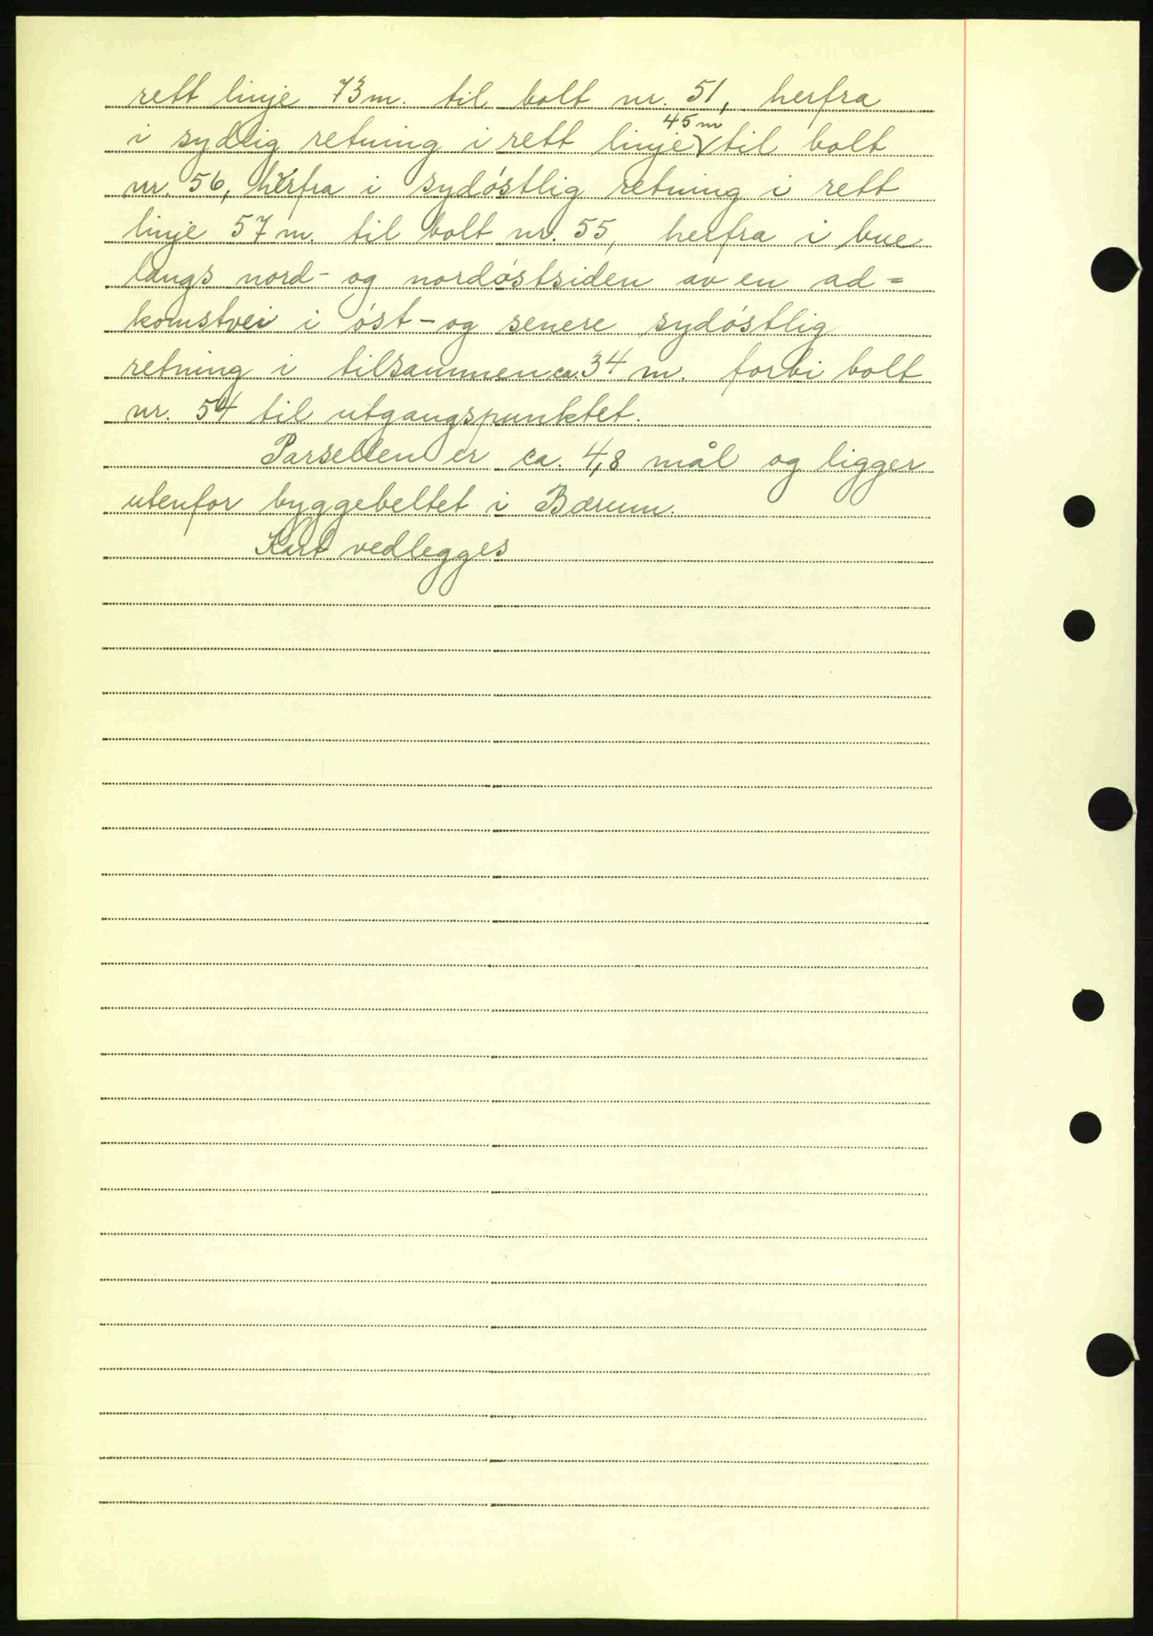 rett linje 73 m. til bolt nr. 51, herfra
i sydlig retning i rett linje 45 m til bolt
nr. 56, herfra i sydøstlig retning i rett
linje 57 m. til bolt nr. 55, herfra i bue
langs nord- og nordøstsiden av en ad=
komstvei i øst- og senere sydøstlig
retning i tilsammen ca. 34 m. forbi bolt
nr. 54 til utgangspunktet.
Parsellen er ca. 4,8 mål og ligger
utenfor byggebeltet i Bærum.
Kart vedlegges